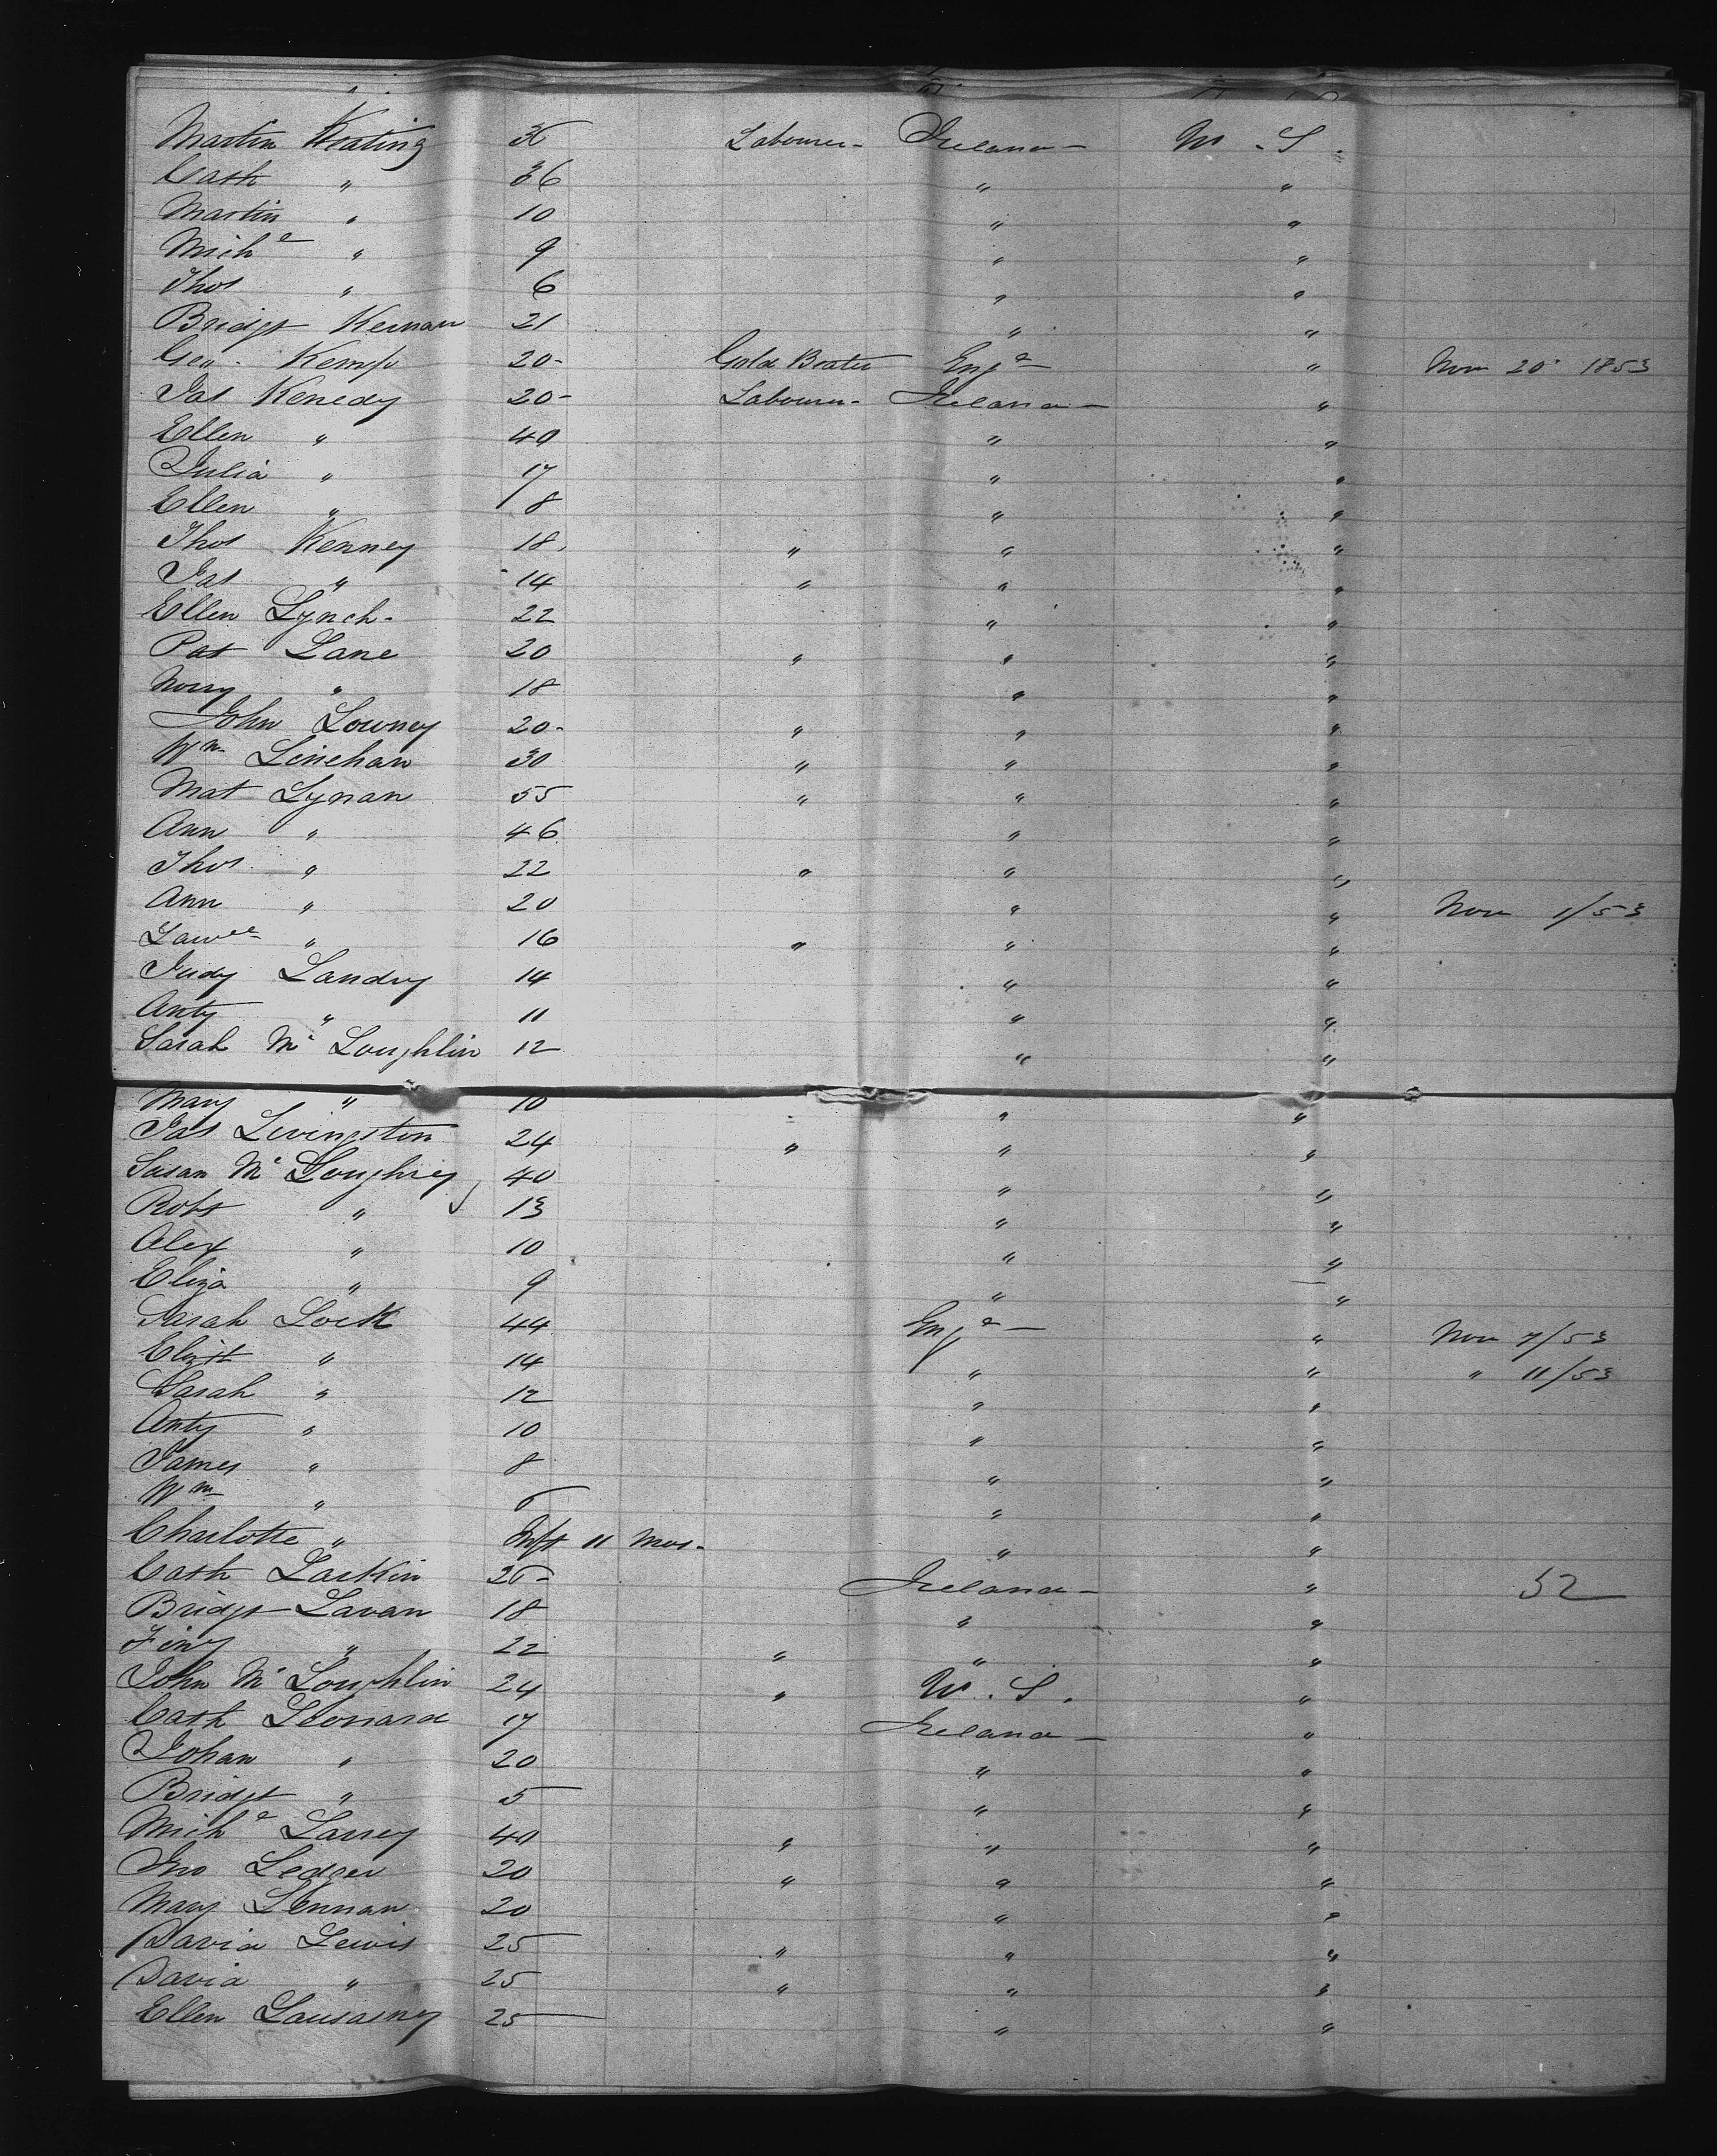 Martin Keating 36 Labourer - Ireland - U . S .
Cath " 36 " "
Martin " 10 " "
Michl " 9 " "
Thos " 6 " "
Bridgt Kernan 21 " "
Geo. Kemp 20 - Gold Beater Engd - " Nov 20 1853
Jas Kenedy 20 - Labourer - Ireland - "
Ellen " 40 " "
Julia " 17 " "
Ellen " 8 " "
Thos Kenney 18 " " "
Jas " 14 " " "
Ellen Lynch - 22 " "
Pat Lane 20 " " "
Norry " 18 " "
John Lowney 20 - " " "
Wm Linehan 30 " " "
Mat Lynan 55 " " "
Ann " 46 " "
Thos " 22 " " "
Ann " 20 " " Nov 1/53
Lawce " 16 " " "
Judy Landry 14 " "
Anty " 11 " "
Sarah Mc Loughlin 12 " "
Mary " 10 " "
Jas Livingston 24 " " "
Susan Mc Loughrey 40 " "
Robt " 13 " "
Alex " 10 " "
Eliza " 9 " "
Sarah Lock 44 Engd - " Nov 7/53
Elizt " 14 " " " 11/53
Sarah " 12 " "
Anty " 10 " "
James " 8 " "
Wm " 6 " "
Charlotte " Inft 11 Mos - " "
Cath Larkin 26 - Ireland - " 52
Bridgt Lavan 18 " "
" 22 " " "
John Mc Loughlin 24 " U . S . "
Cath Leonard 17 Ireland - "
Johan " 20 " "
Bridgt " 5 " "
Michl Larrey 40 " " "
Jno Ledger 20 " " "
Mary Lennan 20 " "
David Lewis 25 " " "
David " 25 " " "
Ellen 25 " "